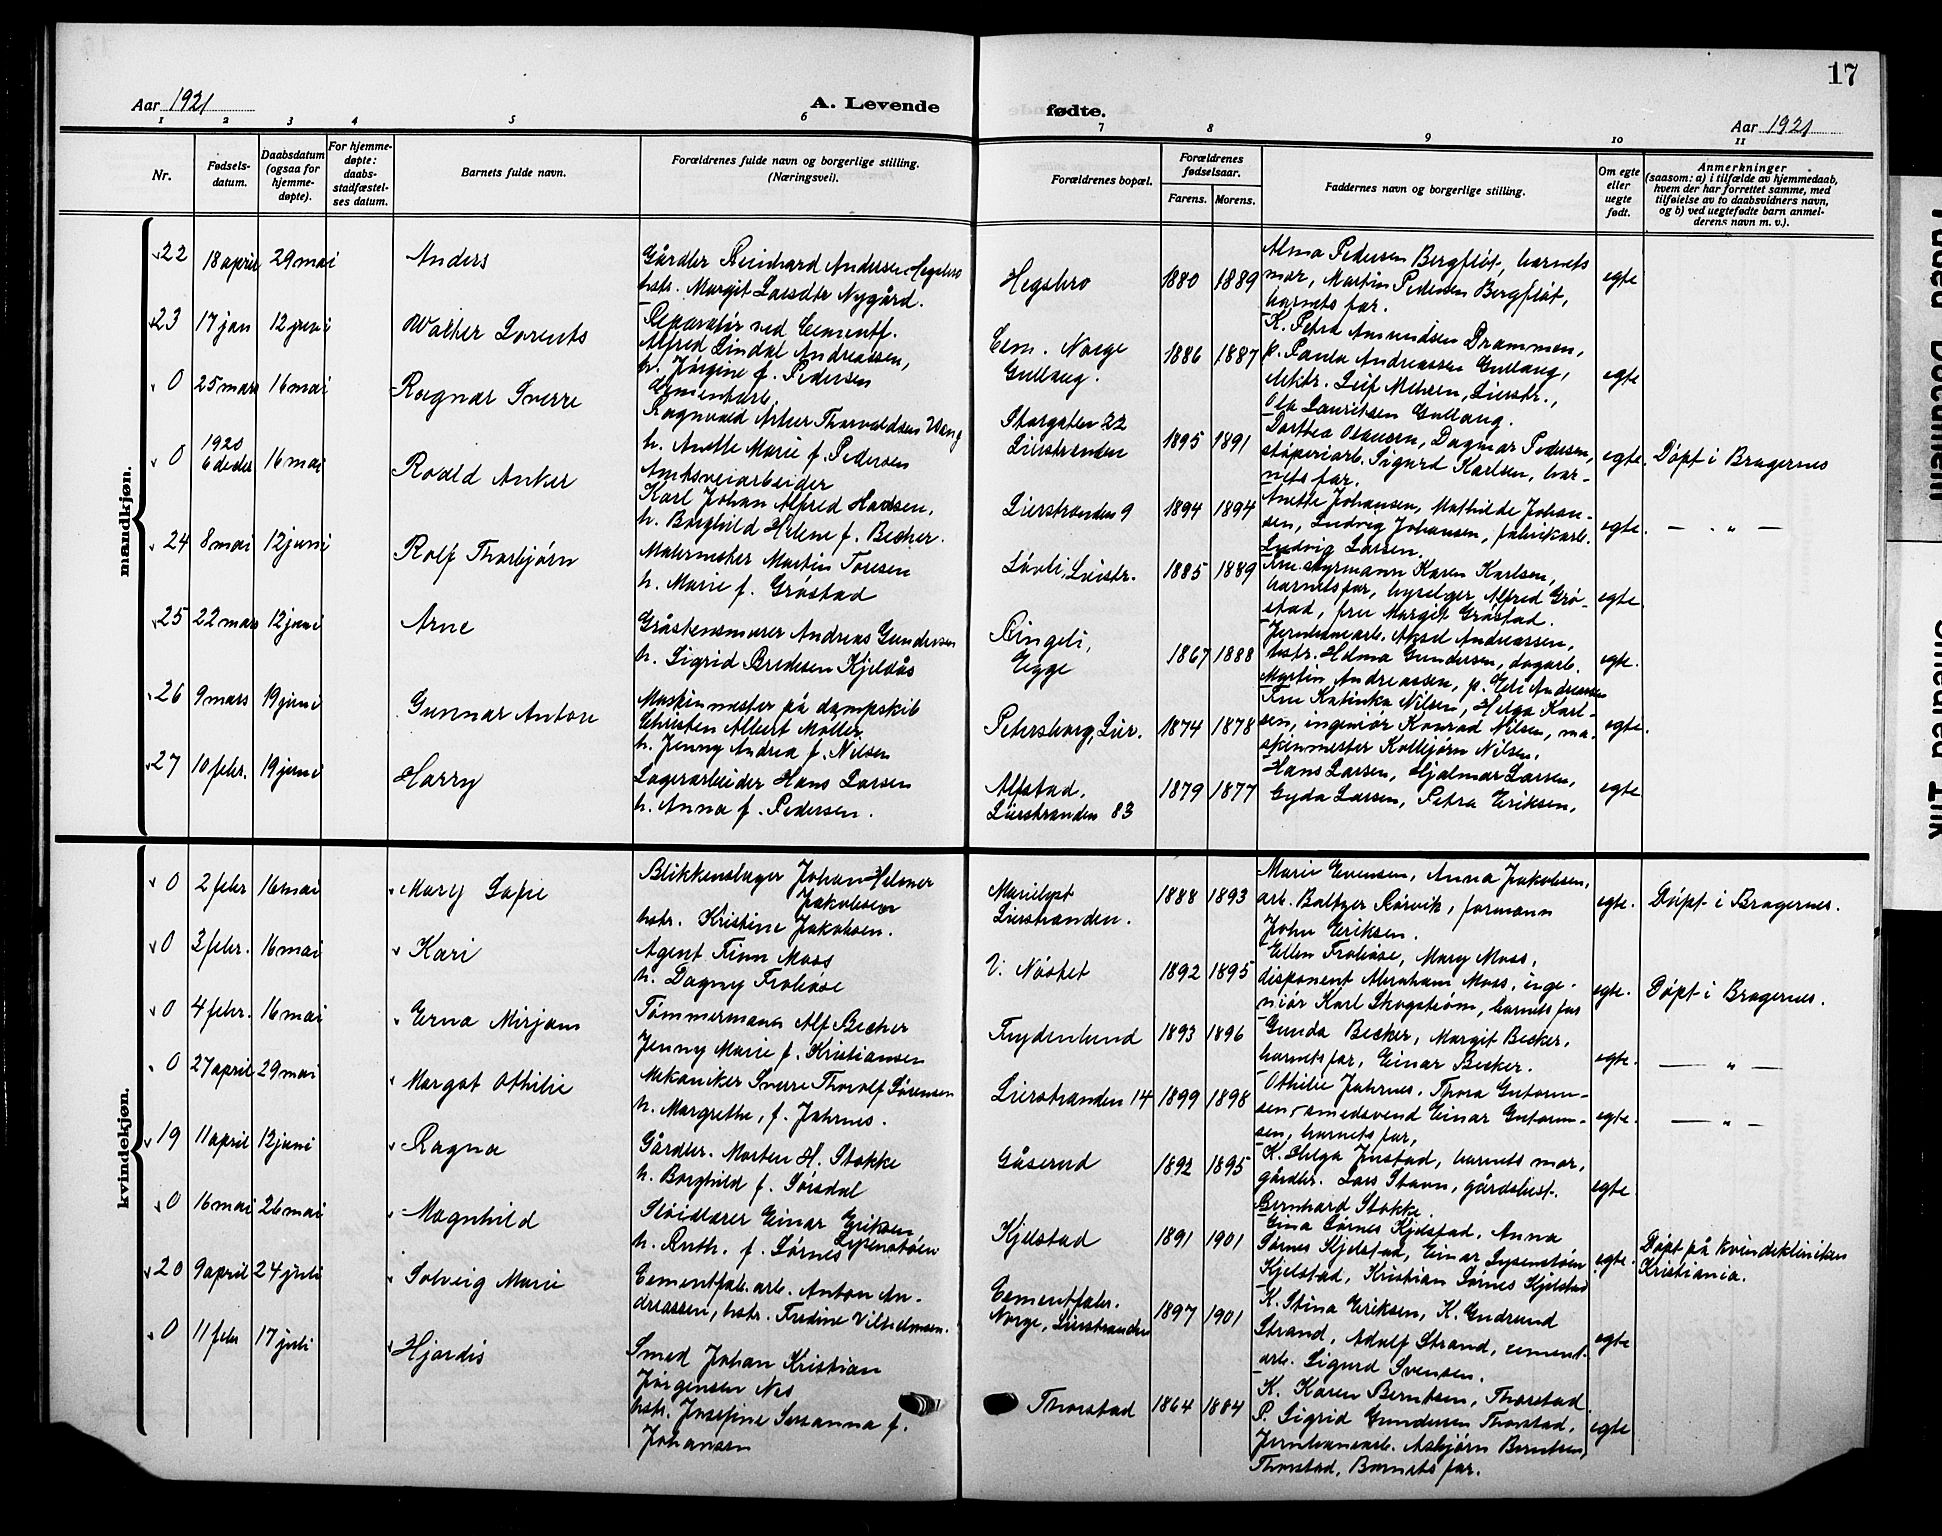 17
Aar 1921
A. Levende fødte.
Aar 1921
1 2 3 4 5 6 7 8 9 10 11
Nr.
Fødsels-
datum.
Daabsdatum
(ogsaa for
hjemme-
døpte).
For hjemme-
døpte:
daabs-
stadfæstel-
ses datum.
Barnets fulde navn.
Forældrenes fulde navn og borgerlige stilling.
(Næringsvei).
Forældrenes bopæl.
Forældrenes
fødselsaar.
Farens. Morens.
Faddernes navn og borgerlige stilling.
Om egte
eller
uegte
født.
Anmerkninger
(saasom: a) i tilfælde av hjemmedaab,
hvem der har forrettet samme, med
tilføielse av to daabsvidners navn,
og b) ved uegtefødte barn anmel-
derens navn m. v.).
mandkjøn.
22 18 april 29 mai Anders
Gårdbr. Reinhard Andersen Hegsbro
hstr. Margit Larsdtr Nygård.
Hegsbro 1880 1889
Alma Pedersen Bergfløt, barnets
mor, Martin Pedersen Bergfløt,
barnets far.
egte
23 17 jan 12 juni Walter Lorents
Reparatør ved Cementf.
Alfred Lindal Andreassen,
h. Jørgine f. Pedersen
Cem. Norge
Gullaug. 1886 1887
K. Petra Amundsen Drammen,
p. Paula Andreassen Gullaug,
elektr. Leif Melsen, Lierstr.,
Ole Lauritsen Gullaug.
egte
0 25 mars 16 mai Ragnar Sverre
Cementarb.
Ragnvald Arthur Thorvaldsen Wang
h. Anette Marie f. Pedersen
Storgaten 22
Lierstranden 1895 1891
Dorthea Olausen, Dagmar Pedersen,
støperiarb. Sigurd Karlsen, bar-
nets far.
egte. Døpt i Bragernes
0 1920
6 decbr 16 mai Roald Anker
Amtsveiarbeider
Karl Johan Alfred Hansen,
h. Borghild Helene f. Becher.
Lierstranden 9 1894 1894
Anette Johansen, Mathilde Johan-
sen, Ludvig Johansen, fabrikarb.
Ludvig Larsen.
egte. — " —
24 8 mai 12 juni Rolf Thorbjørn
Malermester Martin Toresen
h. Marie f. Grøstad
Løvli, Lierstr. 1885 1889
Fru styrmann Karen Karlsen,
barnets far, Alfred Grø-
stad, fru Margit Grøstad.
egte.
25 22 mars 12 juni Arne
Gråstensmurer Andreas Gundersen
h. Sigrid Bredesen Kjeldås
Ringeli,
Egge 1867 1888
Jernbanearb. Aksel Andreassen,
hstr. Helma Gundersen, dagarb.
Martin Andreassen, p. Eli Andreassen
egte.
26 9 mars 19 juni Gunnar Anton
Maskinmester på dampskib
Christen Albert Møller,
h. Jenny Andrea f. Nilsen
Petersborg, Lier. 1874 1878
Fru Katinka Nilsen, Helga Karl-
sen, ingeniør Konrad Nilsen, ma-
skinmester Kolbjørn Nilsen,
egte.
27 10 febr. 19 juni Harry
Lagerarbeider Hans Larsen
h. Anna f. Pedersen.
Alfstad,
Lierstranden 83 1879 1877
Hans Larsen, Hjalmar Larsen,
Gyda Larsen, Petra Eriksen,
egte
kvindekjøn.
0 2 febr 16 mai Mary Sofie
Blikkenslager Johan Helmer
Jakobsen
hstr. Kristine Jakobsen.
Marielyst
Lierstranden. 1888 1893
Marie Evensen, Anna Jakobsen,
arb. Baltzer Rørvik, formann
John Eriksen.
egte. Døpt i Bragernes.
0 3 febr. 16 mai Kari
Agent Finn Moss
h. Dagny Frobøse
V. Nøstet 1892 1895
Ellen Frobøse, Mary Moss,
disponent Abraham Moss, inge-
niør Karl Skogstrøm, barnets far
egte. Døpt i Bragernes.
0 4 febr. 16 mai Erna Mirjam
Tømmermann Alf Becher
Jenny Marie f. Kristiansen
Frydenlund 1893 1896
Gunda Becker, Margit Becker,
barnets far, Einar Becker.
egte. — " —
0 27 april 29 mai Margot Othilie
Mekaniker Sverre Thorolf Sørensen
h. Margrethe, f. Jahrnes.
Lierstranden 14 1899 1898
Othilie Jahrnes, Thora Gutorm-
sen, smedsvend Einar Gutorm-
sen, barnets far,
egte. — " —
19 11 april 12 juni Ragna
Gårdbr. Morten H. Stokke
h. Borghild f. Sørsdal
Gåserud 1892 1895
K. Helga Justad, barnets mor,
gårdbr. Lars Stavn, gårdsbest.
Bernhard Stokke.
egte
0 16 mai 26 mai Magnhild
Sløidlærer Einar Eriksen
Lysenstøen
h. Ruth. f. Sørnes
Kjelstad 1891 1901
Gina Sørnes Kjelstad, Anna
Sørnes Kjelstad, Einar Lysenstøen
Kjelstad, Kristian Sørnes Kjelstad
egte. Døpt på Kvindeklinikken
Kristiania.
20 9 april 24 juli Solveig Marie
Cementfabr.arb. Anton An-
dreassen, hstr. Fredine Vilhelmsen.
Cementfabr.
Norge, Lierstranden 1897 1901
K. Stina Eriksen, K. Gudrund
Strand, Adolf Strand, cement-
arb. Sigurd Svensen.
egte
0 11 febr 17 juli Hjørdis
Smed Johan Kristian
Jørgensen Nes
hstr. Josefine Susanna f.
Johansen
Thorstad 1864 1884
K. Karen Berntsen, Thorstad
P. Sigrid Gundersen Thorstad,
Jernbanearb. Asbjørn Berntsen,
Thorstad, Barnets far.
egte